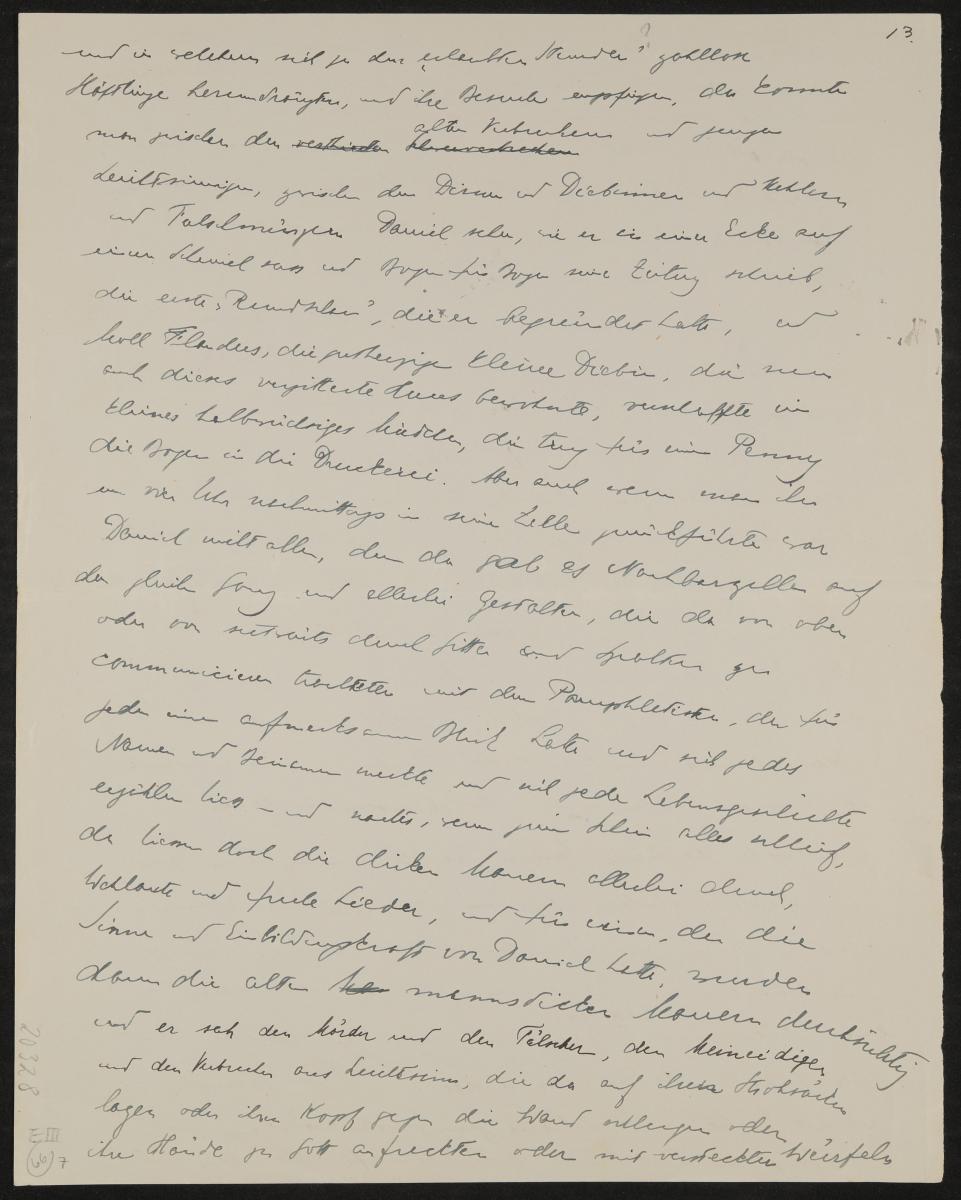 13.
und in welchem sich zu den „erlaubten Stunden" zahllose
Häftlinge herumdrängten, und ihre Besuche empfingen, da konnte
alten Verbrechern und jungen
man zwischen den
Leichtsinnigen, zwischen den Dirnen und Diebinnen und Hehlern
und Falschmünzern Daniel sehn, wie er in einer Ecke auf
einem Schemel sass und Bogen für Bogen seine Zeitung schrieb,
die erste „Rundschau", die er begründet hatte, und
Moll Flanders, die gutherzige kleine Diebin, die nun
auch dieses vergitterte Haus bewohnte, verschaffte ein
kleines halbwüchsiges Mädchen, die trug für einen Penny
die Bogen in die Druckerei. Aber auch wenn man ihn
um vier Uhr nachmittags in seine Zelle zurückführte war
Daniel nicht allein, denn da gab es Nachbarzellen auf
der gleichen Gang und allerlei Gestalten, die da von oben
oder von seitwärts durch Gitter und Spalten zu
communicieren trachteten mit dem Pamphletisten, der für
jeden einen aufmerksamen Blick hatte und sich jedes
Namen und Beinamen merkte und sich jede Lebensgeschichte
erzählen liess – und nachts, wenn zum Schein alles schlief,
da liessen doch die dicken Mauern allerlei durch,
Wehlaute und freche Lieder, und für einen, der die
Sinne und Einbildungskraft von Daniel hatte, wurden
dann die alten mannsdicken Mauern durchsichtig
und er sah den Mörder und den Fälscher, den Meineidigen
und den Verbrecher aus Leichtsinn, die da auf ihren Strohsäcken
lagen oder ihren Kopf gegen die Wand schlugen oder
ihre Hände zu Gott aufreckten oder mit versteckten Würfeln
20328
III
7